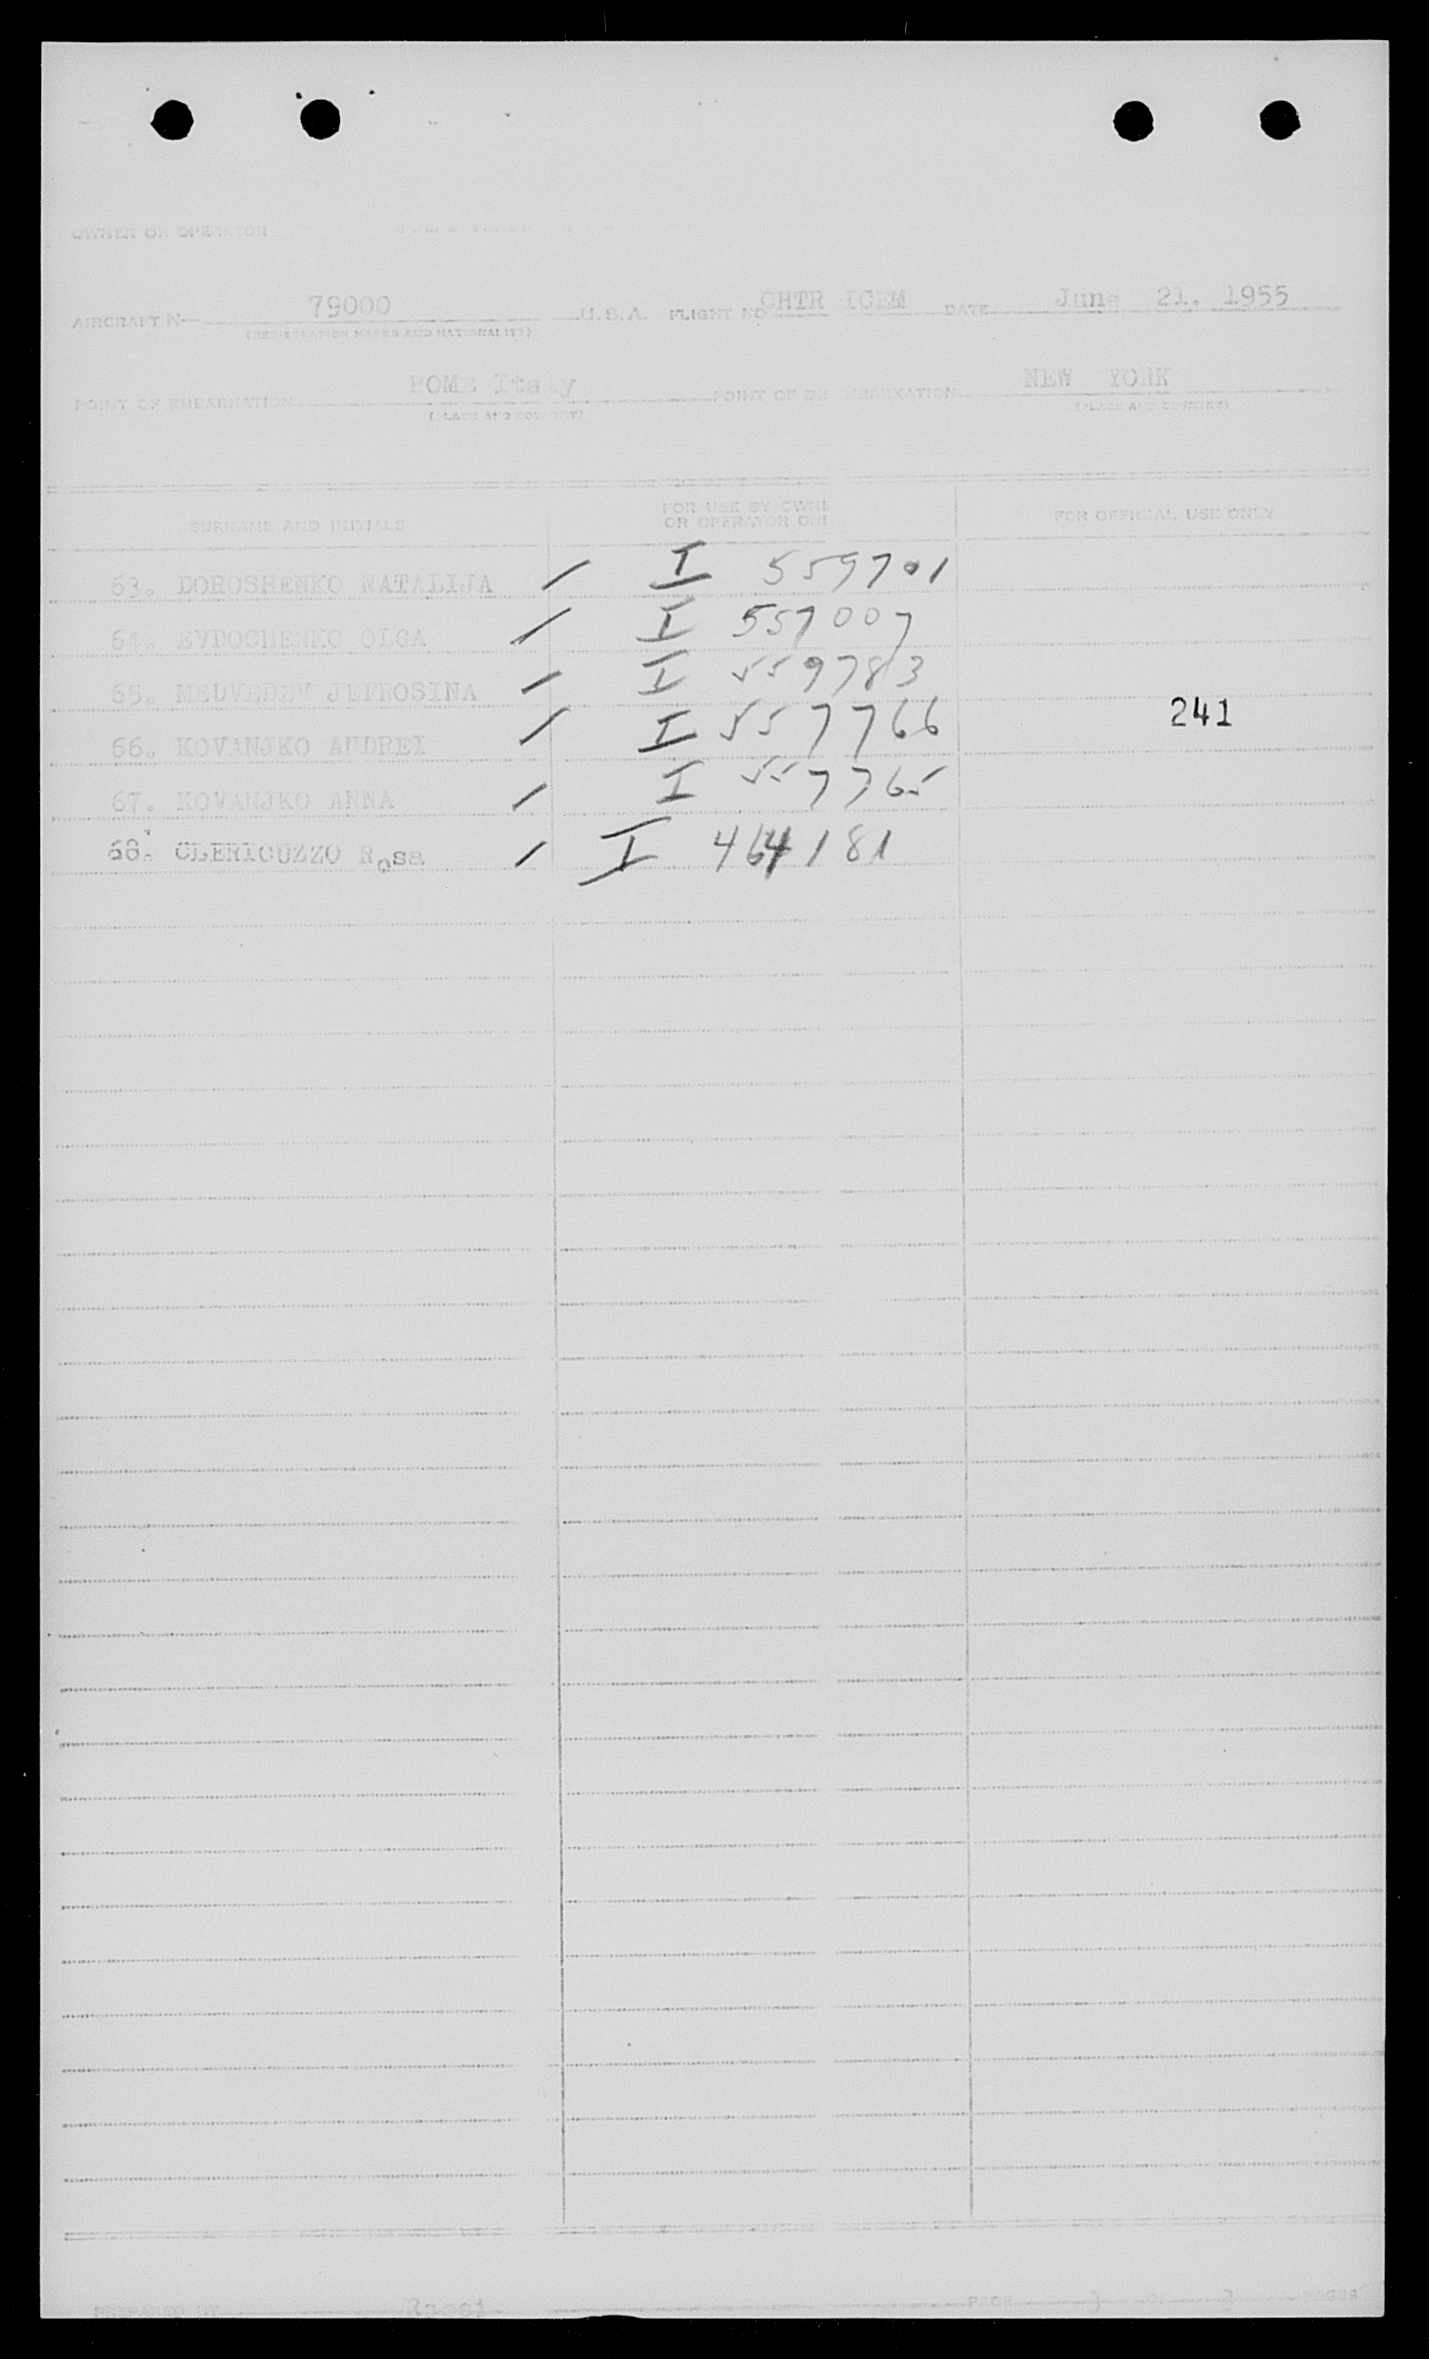 OWNER OR OPERATOR
AIRCRAFT N 79000 U.S.A. FLIGHT NO CHTR ICEM DATE June 21. 1955
(REGISTRATION MARKS AND NATIONALITY)
POINT OF EMBARKATION ROME Italy POINT OF DISEMBARKATION NEW YORK
(PLACE AND COUNTRY) (PLACE AND COUNTRY)
SURNAME AND INITIALS FOR USE BY OWNER OR OPERATOR ONLY FOR OFFICIAL USE ONLY
63. DOROSHENKO NATALIJA / I 559701
64. EVDOCHENKO OLGA / I 557007
65. MEDVEDEV JEFROSINA / I 559783
66. KOVANJKO ANDREI / I 557766 241
67. KOVANJKO ANNA / I 557765
68. CLERICUZZO Rosa / I 464181
PREPARED BY Rossi PAGE 3 OF 3 PAGES